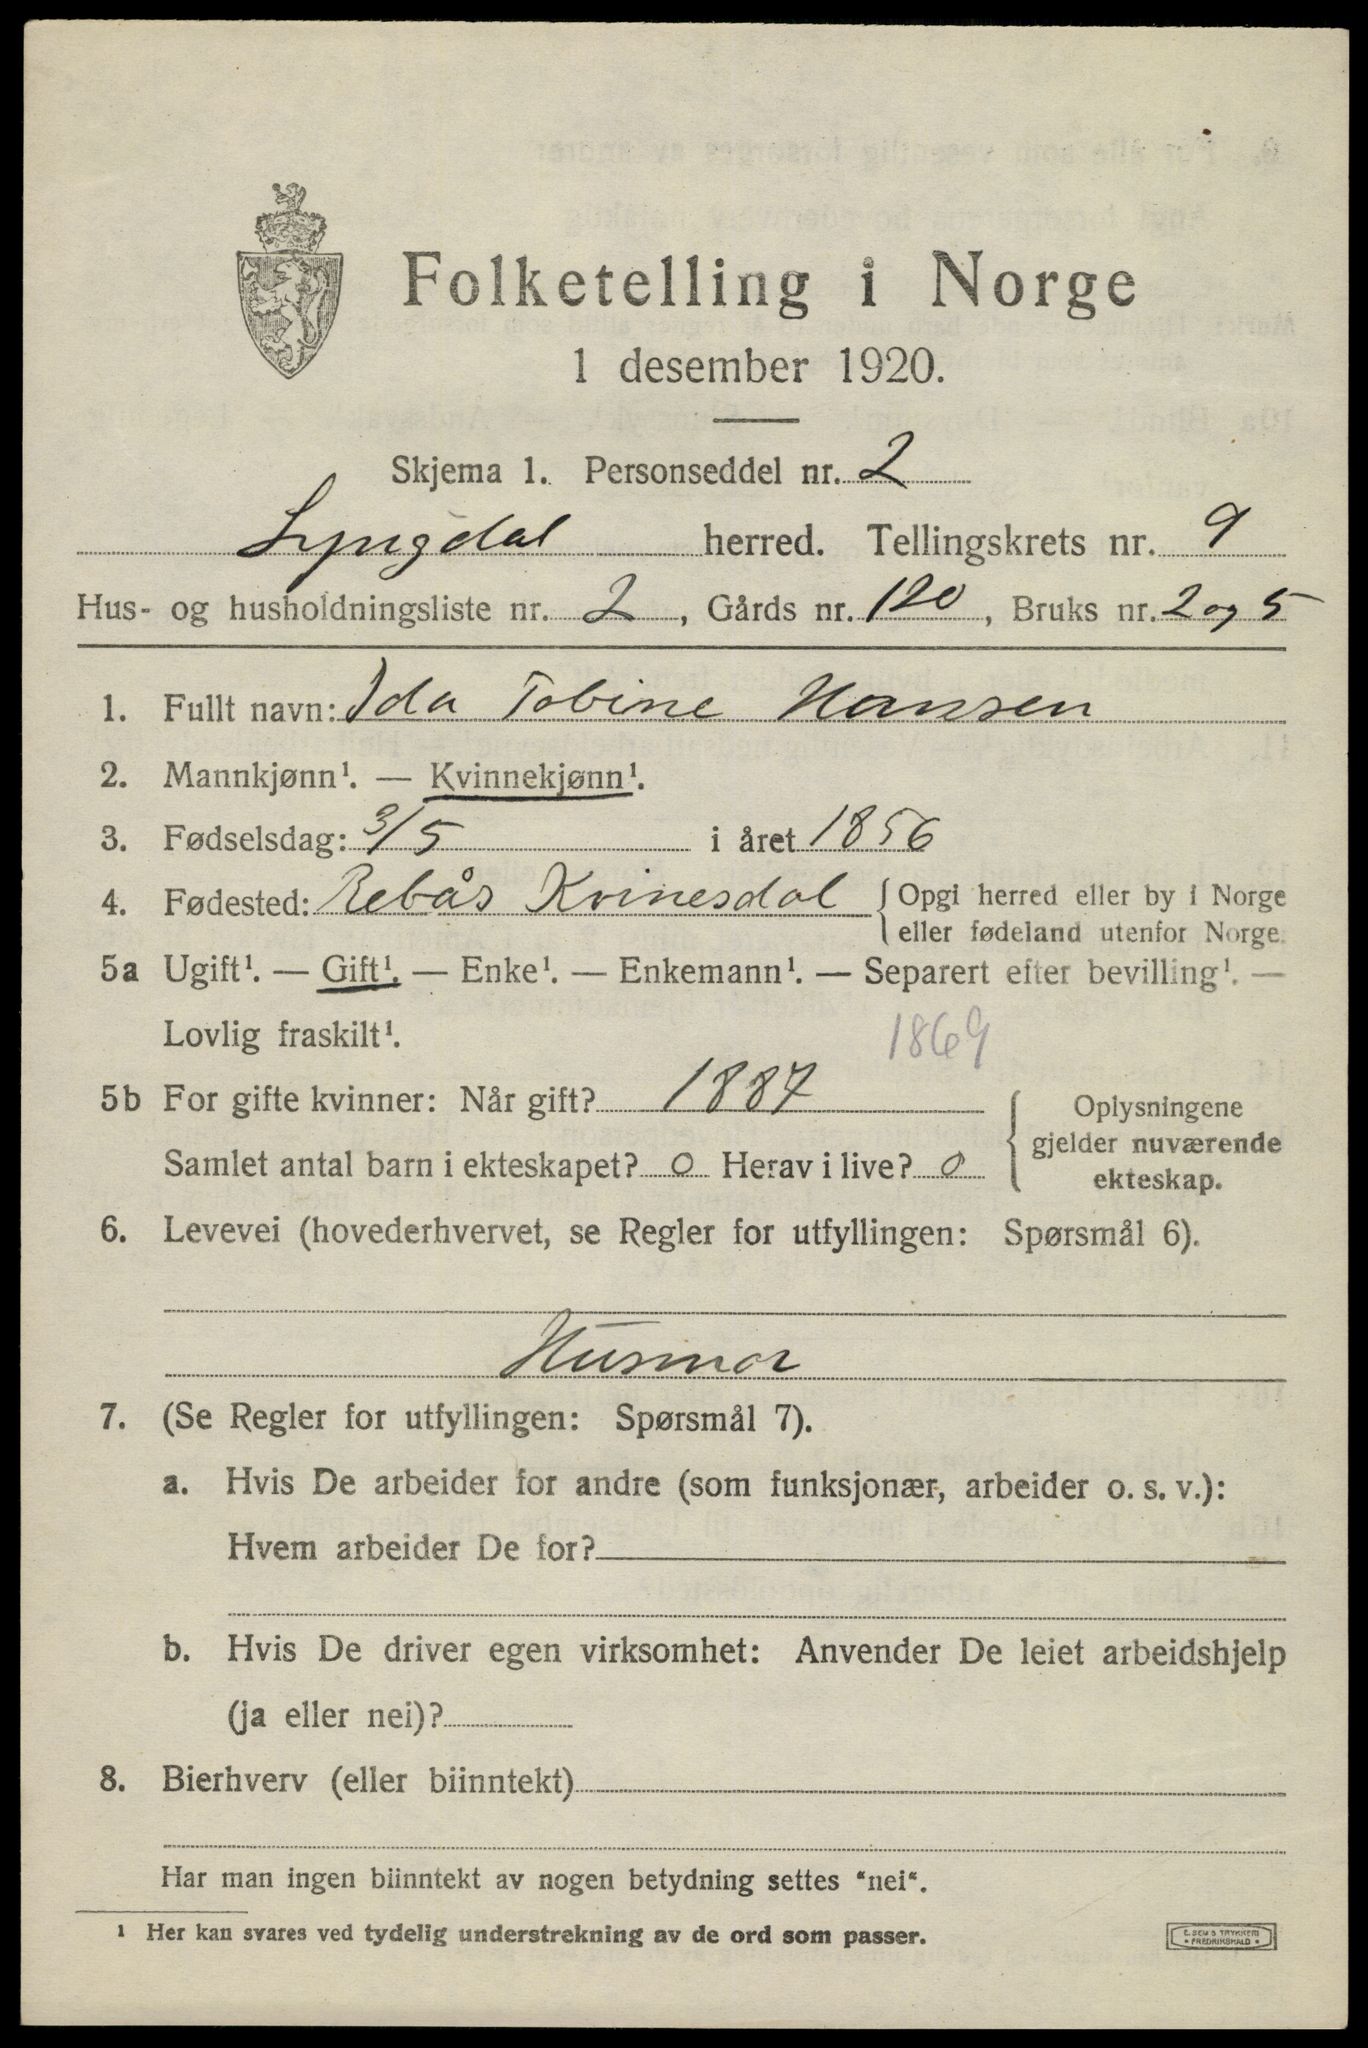 Folketelling i Norge
1 desember 1920.
Skjema 1. Personseddel nr. 2
Lyngdal herred. Tellingskrets nr. 9
Hus- og husholdningsliste nr. 2, Gårds nr. 120, Bruks nr. 2 og 5
1. Fullt navn: Ida Tobine Hansen
2. Mannkjønn¹. — Kvinnekjønn¹.
3. Fødselsdag: 3/5 i året 1856
4. Fødested: Rebås Kvinesdal { Opgi herred eller by i Norge
eller fødeland utenfor Norge.
5a Ugift¹. — Gift¹. — Enke¹. — Enkemann¹. — Separert efter bevilling¹. —
Lovlig fraskilt¹. 1869
5b For gifte kvinner: Når gift? 1887
Samlet antal barn i ekteskapet? 0 Herav i live? 0
Oplysningene
gjelder nuværende
ekteskap.
6. Levevei (hovederhvervet, se Regler for utfyllingen: Spørsmål 6).
Husmor
7. (Se Regler for utfyllingen: Spørsmål 7).
a. Hvis De arbeider for andre (som funksjonær, arbeider o. s. v.):
Hvem arbeider De for?
b. Hvis De driver egen virksomhet: Anvender De leiet arbeidshjelp
(ja eller nei)?
8. Bierhverv (eller biinntekt)
Har man ingen biinntekt av nogen betydning settes "nei".
¹ Her kan svares ved tydelig understrekning av de ord som passer.
E. SEM'S TRYKKERI
FREDRIKSHALD